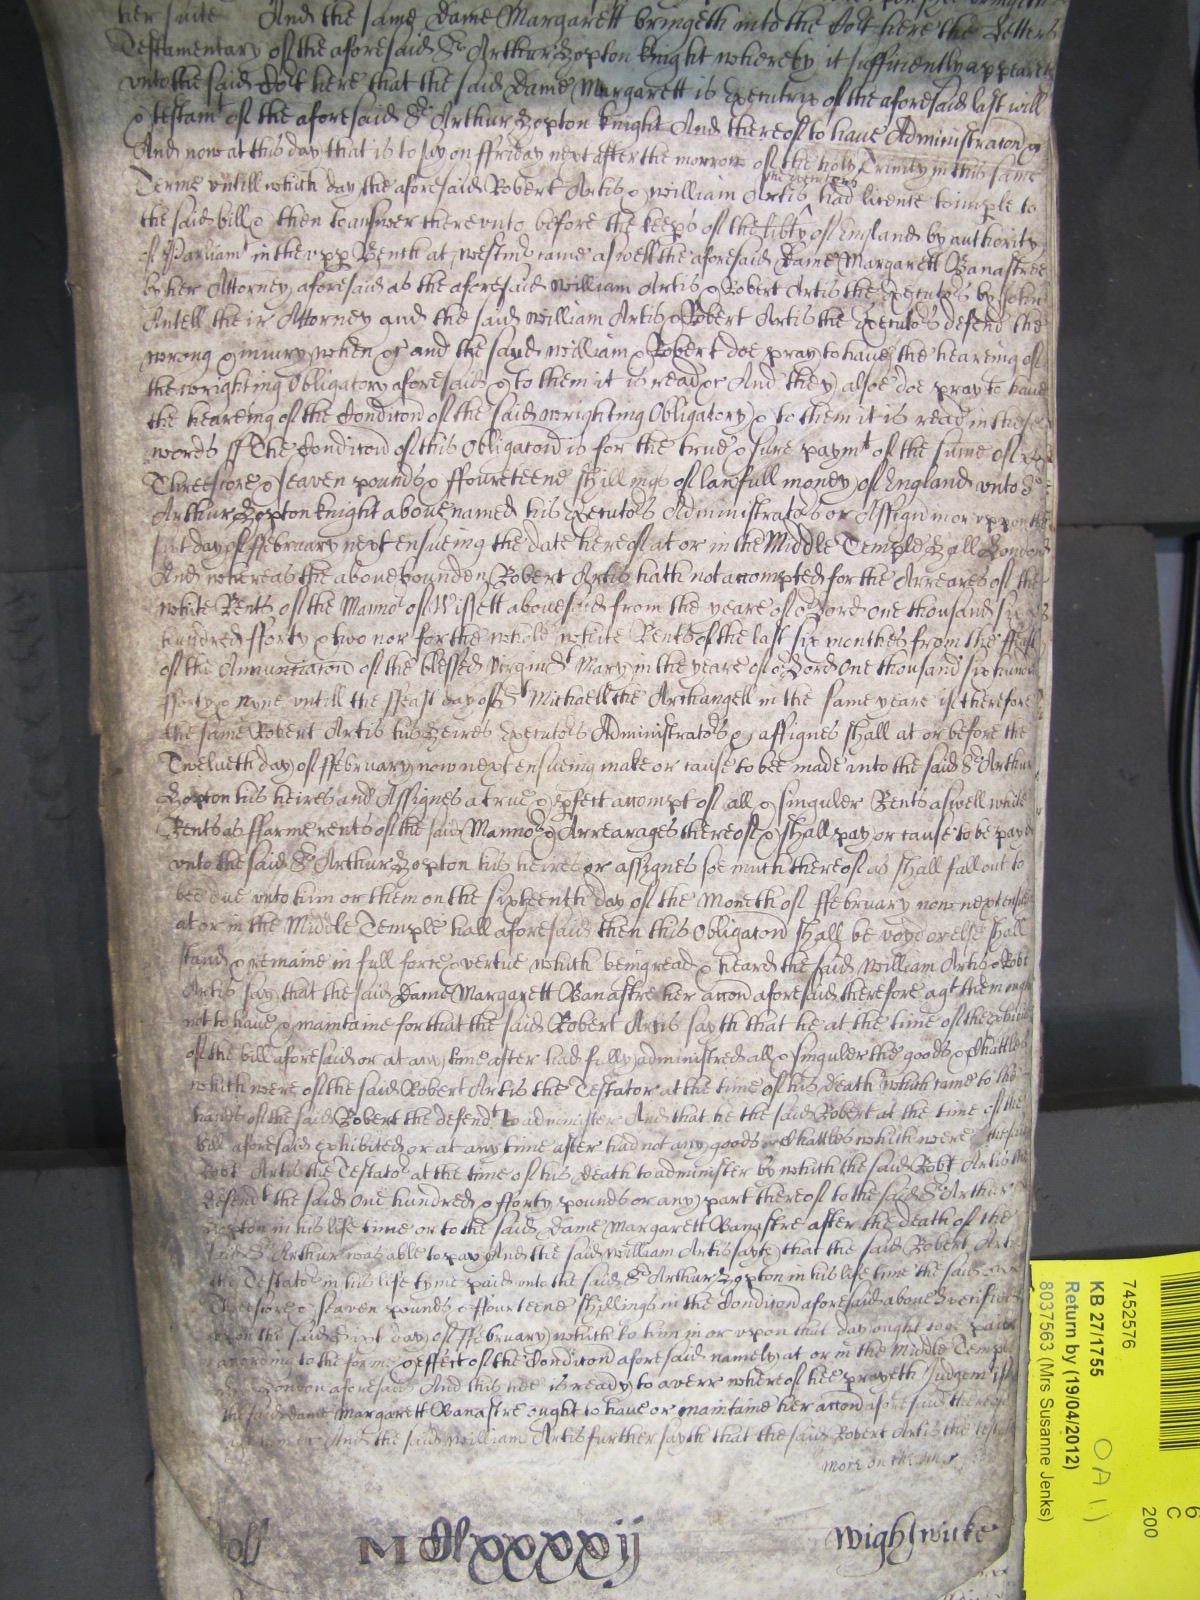 her suite And the same Dame Margarett bringeth into the Co't here the Letters
Testamentary of the aforesaid Sr Arthur Hopton knight whereby it sufficiently appeareth
unto the said Co't here that the said Dame Margarett is Executrix of the aforesaid last will
& testamt of the aforesaid Sr Arthur Hopton knight And thereof to have Administracon &c
And now at this day that is to say on ffriday next after the morrow of the holy Trinity in this same
Terme untill which day the aforesaid Robert Artis & William Artis the Executors had licence to imple to
the said bill & then to answer thereunto before the keep's of the lib'ty of England by authority
of Parliamt in the upp Bench at Westm' came aswell the aforesaid Dame Margarett Banastree
by her Attorney aforesaid as the aforesaid William Artis & Robert Artis the Executors by John
Antell their Attorney and the said William Artis & Robert Artis the Executors defend the
wrong & iniury when &c and the said William & Robert doe pray to have the heareing of
the wrighting Obligatory aforesaid & to them it is read &c And they alsoe doe pray to have
the heareing of the Condicon of the said wrighting Obligatory & to them it is read in these
words ff The Condicon of this Obligatcon is for the true & sure paymt of the sume of
Threescore & seaven pounds & ffoureteene shillings of lawfull money of England unto Sr
Arthur Hopton knight above named his Executors Administrators or Assign'
day of ffebruary next ensueing the date hereof at or in the Middle Temple Hall London
And whereas the above bounden Robert Artis hath not accompted for the Arreares of the
white Rents of the Manno' of Wissett abovesaid from the yeare of o' Lord One thousand six
hundred fforty & two nor for the whole white Rents of the last six monthes from the ffeast
of the Annunciacon of the blessed virgin St Mary in the yeare of o' Lord One thousand six hundred
fforty & nyne untill the ffeast day of St Michaell the Archangell in the same yeare if therefore
the same Robert Artis his Heires Executors Administrators & assignes shall at or before the
Twelueth day of ffebruary now next ensueing make or cause to bee made unto the said Sr Arthur
Hopton his heires and Assignes a true & p'fect accompt of all & singuler Rents aswell white
Rents as ffarme rents of the said Manno' & Arrearages thereof & shall pay or cause to be payd
unto the said Sr Arthur Hopton his heires or assignes soe much thereof as shall fall out to
bee due unto him or them on the sixteenth day of the Moneth of ffebruary now next ens
at or in the Middle Temple hall aforesaid then this Obligacon shall be voyd or else shall
stand & remaine in full force & vertue which being read & heard the said William Artis & Robt
Artis say that the said Dame Margarett Banastre her accon aforesaid therefore agt them ought
not to have & maintaine for that the said Robert Artis sayth that he at the time of the exhibi
of the bill aforesaid or at any time after had fully administred all & singuler the goods & Chattles
which were of the said Robert Artis the Testator at the time of his death which came to the
hands of the said Robert the defendt to administer And that he the said Robert at the time of the
bill aforesaid exhibited or at any time after had not any goods or Chattles which were of the said
Robt Artis the Testato' at the time of his death to administer by which the said Robt Artis the
defendt the said One hundred & fforty pounds or any part thereof to the said Sr Arthur
Hopton in his life time or to the said Dame Margarett Banastre after the death of the
said Sr Arthur was able to pay And the said William Artis sayth that the said Robert Artis
the Testator in his life tyme paid unto the said Sr Arthur Hopton in his life time the said
Threescore & seaven pounds & ffourteene shillings in the Condicon aforesaid above specified
upon the said day of ffebruary which to him in or upon that day ought to be paid
according to the forme & effect of the Condicon aforesaid namely at or in the Middle Temple
London aforesaid And this hee is ready to averr whereof hee prayeth Judgemt if
the said dame Margarett Banastre ought to have or maintaine her accon aforesaid thereof
And the said William Artis further sayth that the said Robert Artis the
more on the
M CClxxxxij
Wightwicke
7452576
KB 27/1755
Return by (19/04/2012)
8037563 (Mrs Susanne Jenks)
6
C
200